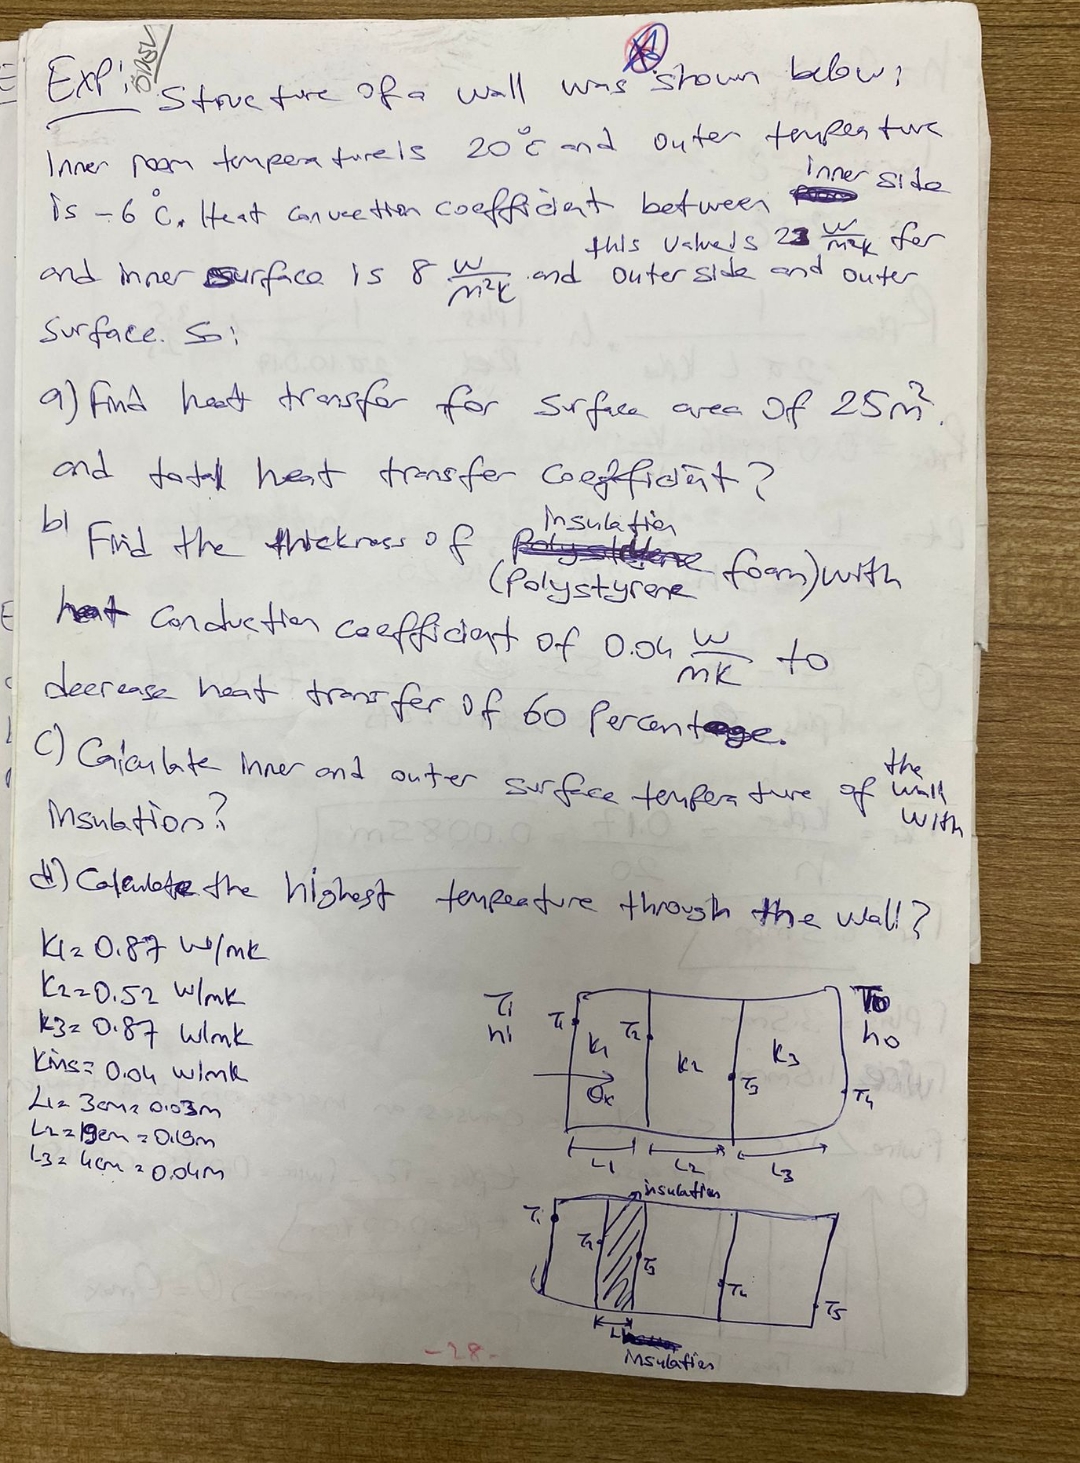 Exp:
Structure of a wall was shown below;
Inner room temperature is 20°C and outer temperature
inner side
is -6°C. Heat convection coefficient between
this value is 23 W/m²K for
and inner surface is 8 W/m²K and outer side and outer
surface. So;
a) Find heat transfer for surface area of 25m².
and total heat transfer coefficient?
b) Find the thickness of insulation
(Polystyrene foam) with
heat conduction coefficient of 0.04 W/mK to
decrease heat transfer of 60 Percent.
c) Calculate inner and outer surface temperature of the wall with
insulation?
d) Calculate the highest temperature through the wall?
K1=0.87 W/mK
K2=0.52 W/mK
K3=0.87 W/mK
Kins=0.04 W/mK
L1=3cm=0.03m
L2=19cm=0.19m
L3=4cm=0.04m
Ti
hi
T1
K1
T2
K2
K3
To
ho
T3
T4
Qx
L1
L2
L3
insulation
T1
T2
T3
T4
T5
L
insulation
-28-